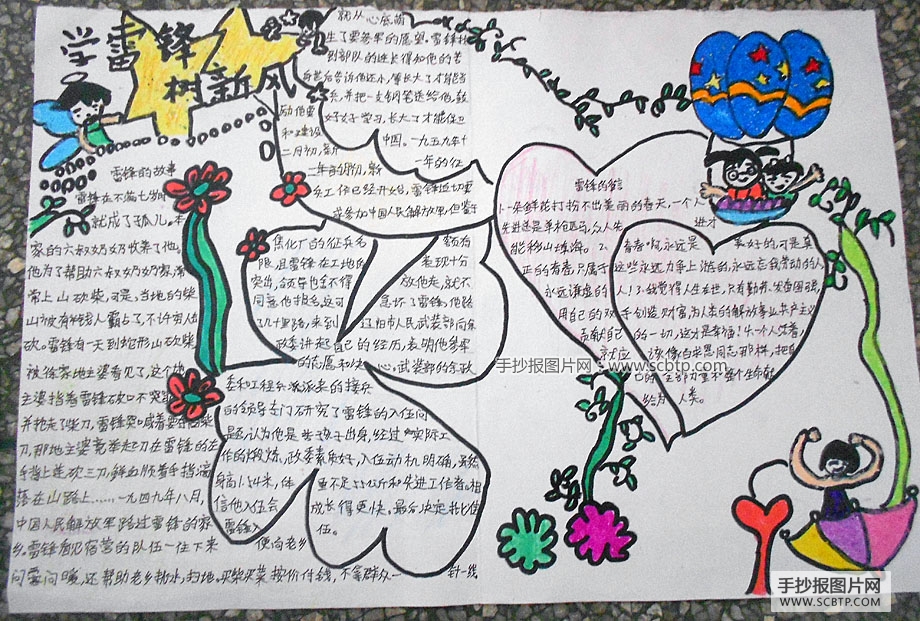 学雷锋
树新风
雷锋的故事
雷锋在不满七岁时
就成了孤儿,本
家的六叔奶奶收养了他。
他为了帮助六叔奶奶家,常
常上山砍柴,可是,当地的柴
山被有钱人霸占了,不许穷人
砍。雷锋有一天到蛇形山砍柴
被徐家地主婆看见了,这个地
主婆指着雷锋破口
并抢走了柴刀,雷锋哭喊着要
刀,那地主婆竟举起刀在雷锋的左
手背上连砍三刀,鲜血顺着手指
落在山路上……一九四九年八月,
中国人民解放军路过雷锋的家
乡。雷锋看见宿营的队伍一住下来
便向老乡
问寒问暖,还帮助老乡挑水,扫地。买柴买菜按价付钱,不拿群众一针一线
就从心底萌
生了要参军的愿望。雷锋找
到部队的连长得知他的苦
后告诉他还小,等长大了才能当
兵,并把一支钢笔送给他,鼓
励他要好好学习,长大了才能保卫
和建设中国。一九五九年十
二月初,新一年的征
兵工作已经开始,雷锋迫切要
求参加中国人民解放军,但鉴于
焦化厂的征兵名额有
限,且雷锋在工地的表现十分
突出,领导也舍不得放他走,就不
同意他报名,这可急坏了雷锋,他跑
了几十里路,来到辽阳市人民武装部向余
政委讲起自己的经历,表明他参军
的志愿和决心,武装部的余政
委和工程兵派来的接兵
的领导专门研究了雷锋的入伍问
题,认为他是苦孩子出身,经过实际工
作的煅炼,政委素质好,入伍动机明确,虽然
身高1.54米,体重不足55公斤和先进工作者,相
信他入伍会成长得更快,最后决定批准
雷锋入伍。
雷锋名言
1.一朵鲜花打扮不出美丽的春天,一个人
先进总是单枪匹马,众人先进才
能移山填海。2、青春啊,永远是美好的,可是真
正的青春,只属于这些永远力争上游的,永远忘我劳动的人
永远谦虚的人!3、我觉得人生在世,只有勤劳,发奋图强,
用自己的双手创造财富,为人类的解放事业共产主义
贡献自己的一切,这才是幸福!4、一个人
就应该像白求恩同志那样,把自
己的全部力量和整个生命献
给人类。
手抄报图片网
www.scbtp.com
手抄报图片网
WWW.SCBTP.COM